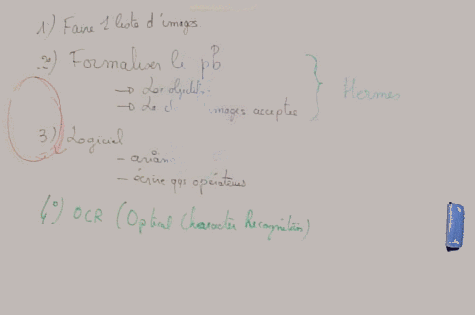 1) Faire 1 liste d'images.
2) Formaliser le pb
→ Les
→ La d images acceptes
Hermes
3) Logiciel
-
- écrire qqs opérateurs
4°) OCR (Optical Character Recognition)